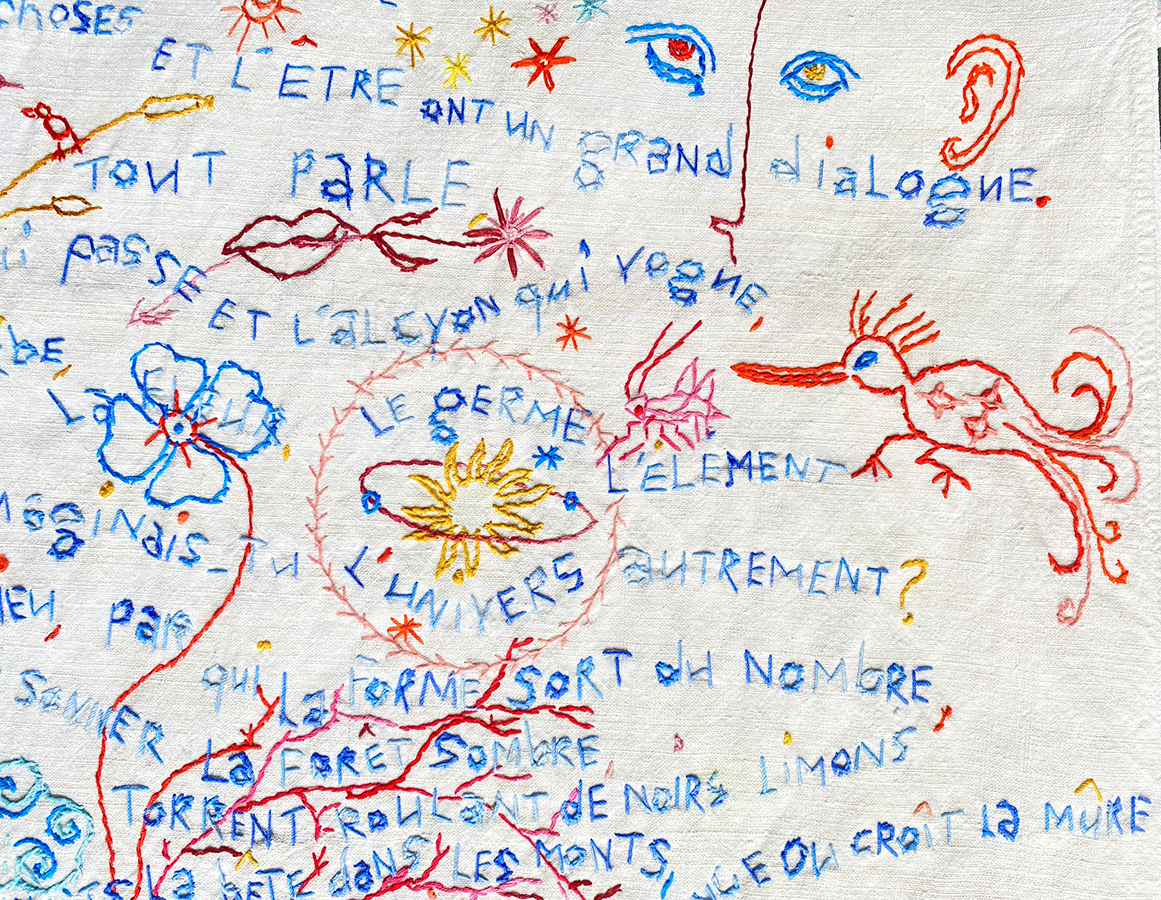 CHOSES
ET L'ÊTRE ONT UN GRAND dialogue.
TOUT PARLE
passe ET L'ALCYON qui vogue,
LE GERME
La FLEUR
L'ELEMENT
imaginais-Tu L'UNIVERS AUTREMENT ?
par qui La FORME SORT du NOMBRE
La FORET SOMBRE,
TORRENT ROULANT DE NOIRS LIMONS,
La bETE daNS LES MONTS,
OU CROÎT La MÛRE